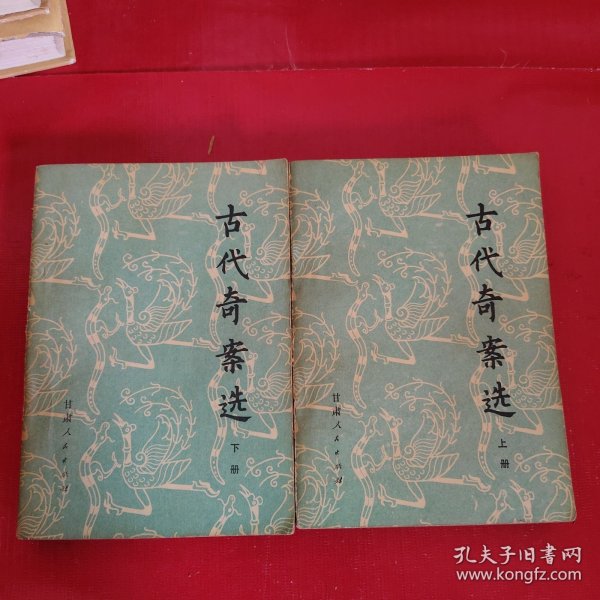 古代奇案选
下册
甘肃人民出版社
古代奇案选
上册
甘肃人民出版社
孔夫子旧书网
www.kongfz.com